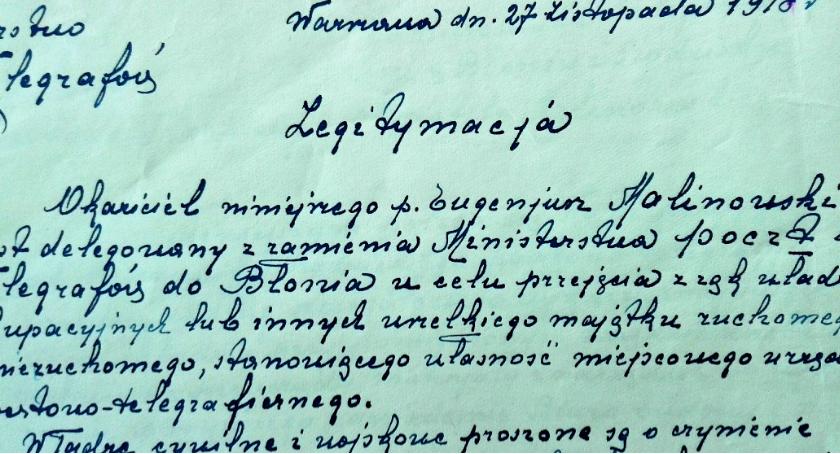 rstwo Warszawa dn. 27 Listopada 1918
legrafów
)
Legitymacja
Okaziciel niniejszego p. Eugenjusz Malinowski
st delegowany z ramienia Ministerstwa poczt
legrafów do Błonia w celu przejęcia z rąk władz
kupacyjnych lub innych wszelkiego majątku ruchome
nieruchomego, stanowiącego własność miejscowego urzę
cztowo-telegraficznego.
Władze cywilne i wojskowe proszone są o czynienie